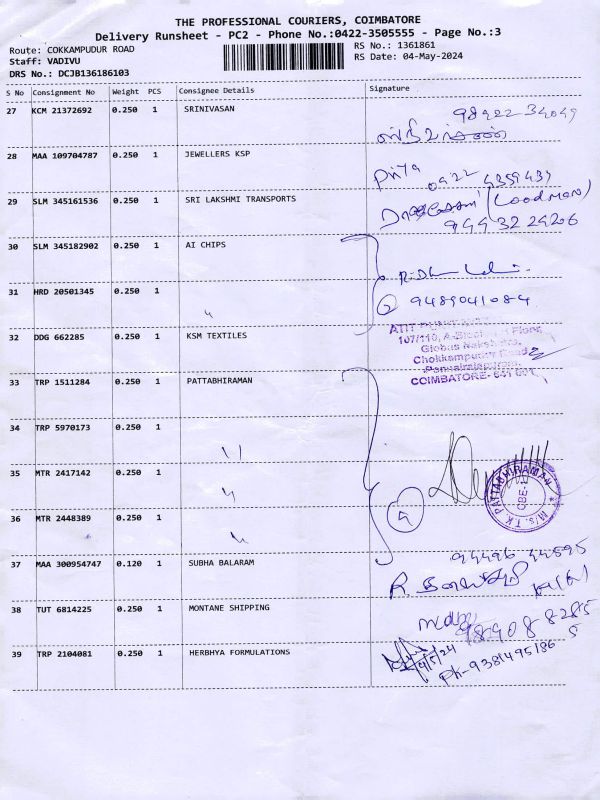 THE PROFESSIONAL COURIERS, COIMBATORE
Delivery Runsheet - PC2 - Phone No.:0422-3505555 - Page No.:3
Route: COKKAMPUDUR ROAD
Staff: VADIVU
DRS No.: DCJB136186103
RS No.: 1361861
RS Date: 04-May-2024
S No Consignment No Weight PCS Consignee Details Signature
27 KCM 21372692 0.250 1 SRINIVASAN
98422 34049
28 MAA 109704787 0.250 1 JEWELLERS KSP
Priya 0422 4359437
29 SLM 345161536 0.250 1 SRI LAKSHMI TRANSPORTS
(Loodman)
94432 24206
30 SLM 345182902 0.250 1 AI CHIPS
31 HRD 20501345 0.250 1
9489041084
32 DDG 662285 0.250 1 KSM TEXTILES
107/110,
Globus
Chokkampudur Road
COIMBATORE-
33 TRP 1511284 0.250 1 PATTABHIRAMAN
34 TRP 5970173 0.250 1
35 MTR 2417142 0.250 1
M/s. T.K. PATTABHIRAMAN
CBE-1
36 MTR 2448389 0.250 1
4
37 MAA 300954747 0.120 1 SUBHA BALARAM
94496 44595
38 TUT 6814225 0.250 1 MONTANE SHIPPING
39 TRP 2104081 0.250 1 HERBHYA FORMULATIONS
Ph-9381495186